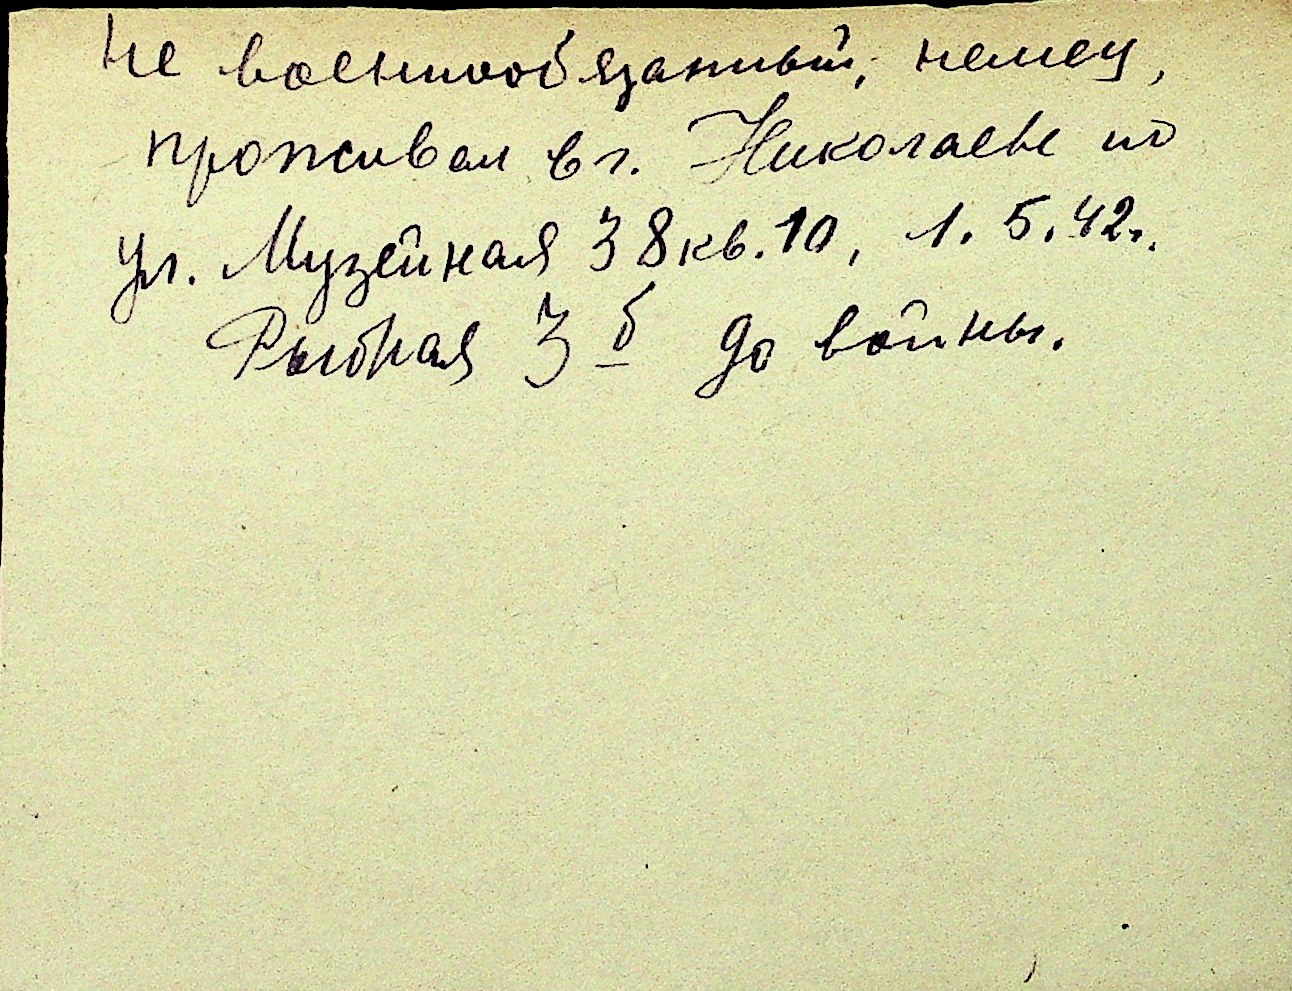 Не военнообязанный, немец,
проживал в г. Николаеве по
ул. Музейная 38 кв. 10, 1. 5. 42 г.
Рыбная 3 б до войны.